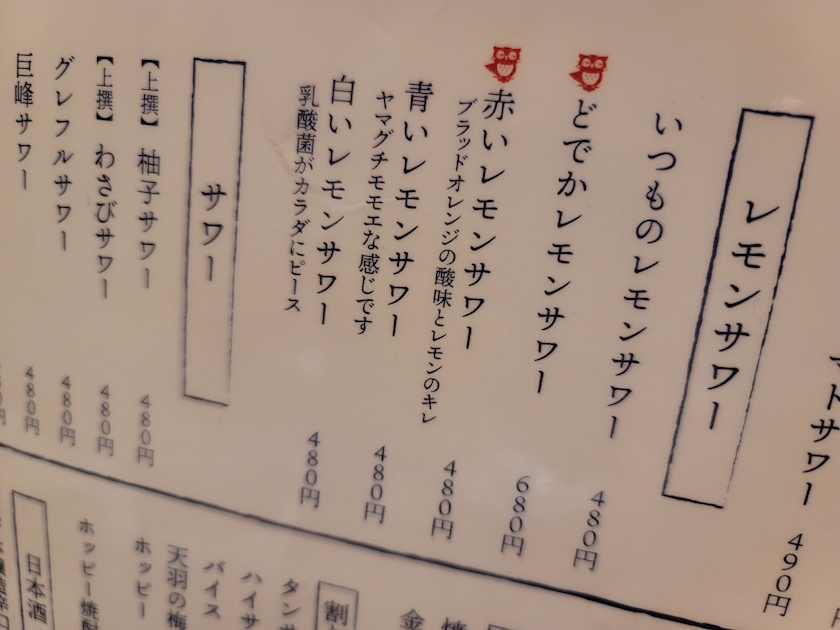 マトサワー 490円
レモンサワー
いつものレモンサワー 480円
どでかレモンサワー 680円
赤いレモンサワー 480円
ブラッドオレンジの酸味とレモンのキレ
青いレモンサワー 480円
ヤマグチモモエな感じです
白いレモンサワー 480円
乳酸菌がカラダにピース
サワー
【上撰】 柚子サワー 480円
【上撰】 わさびサワー 480円
グレフルサワー 480円
巨峰サワー 480円
割
タンサ
ハイサ
バイス
天羽の梅
ホッピー
ホッピー焼酎
日本酒